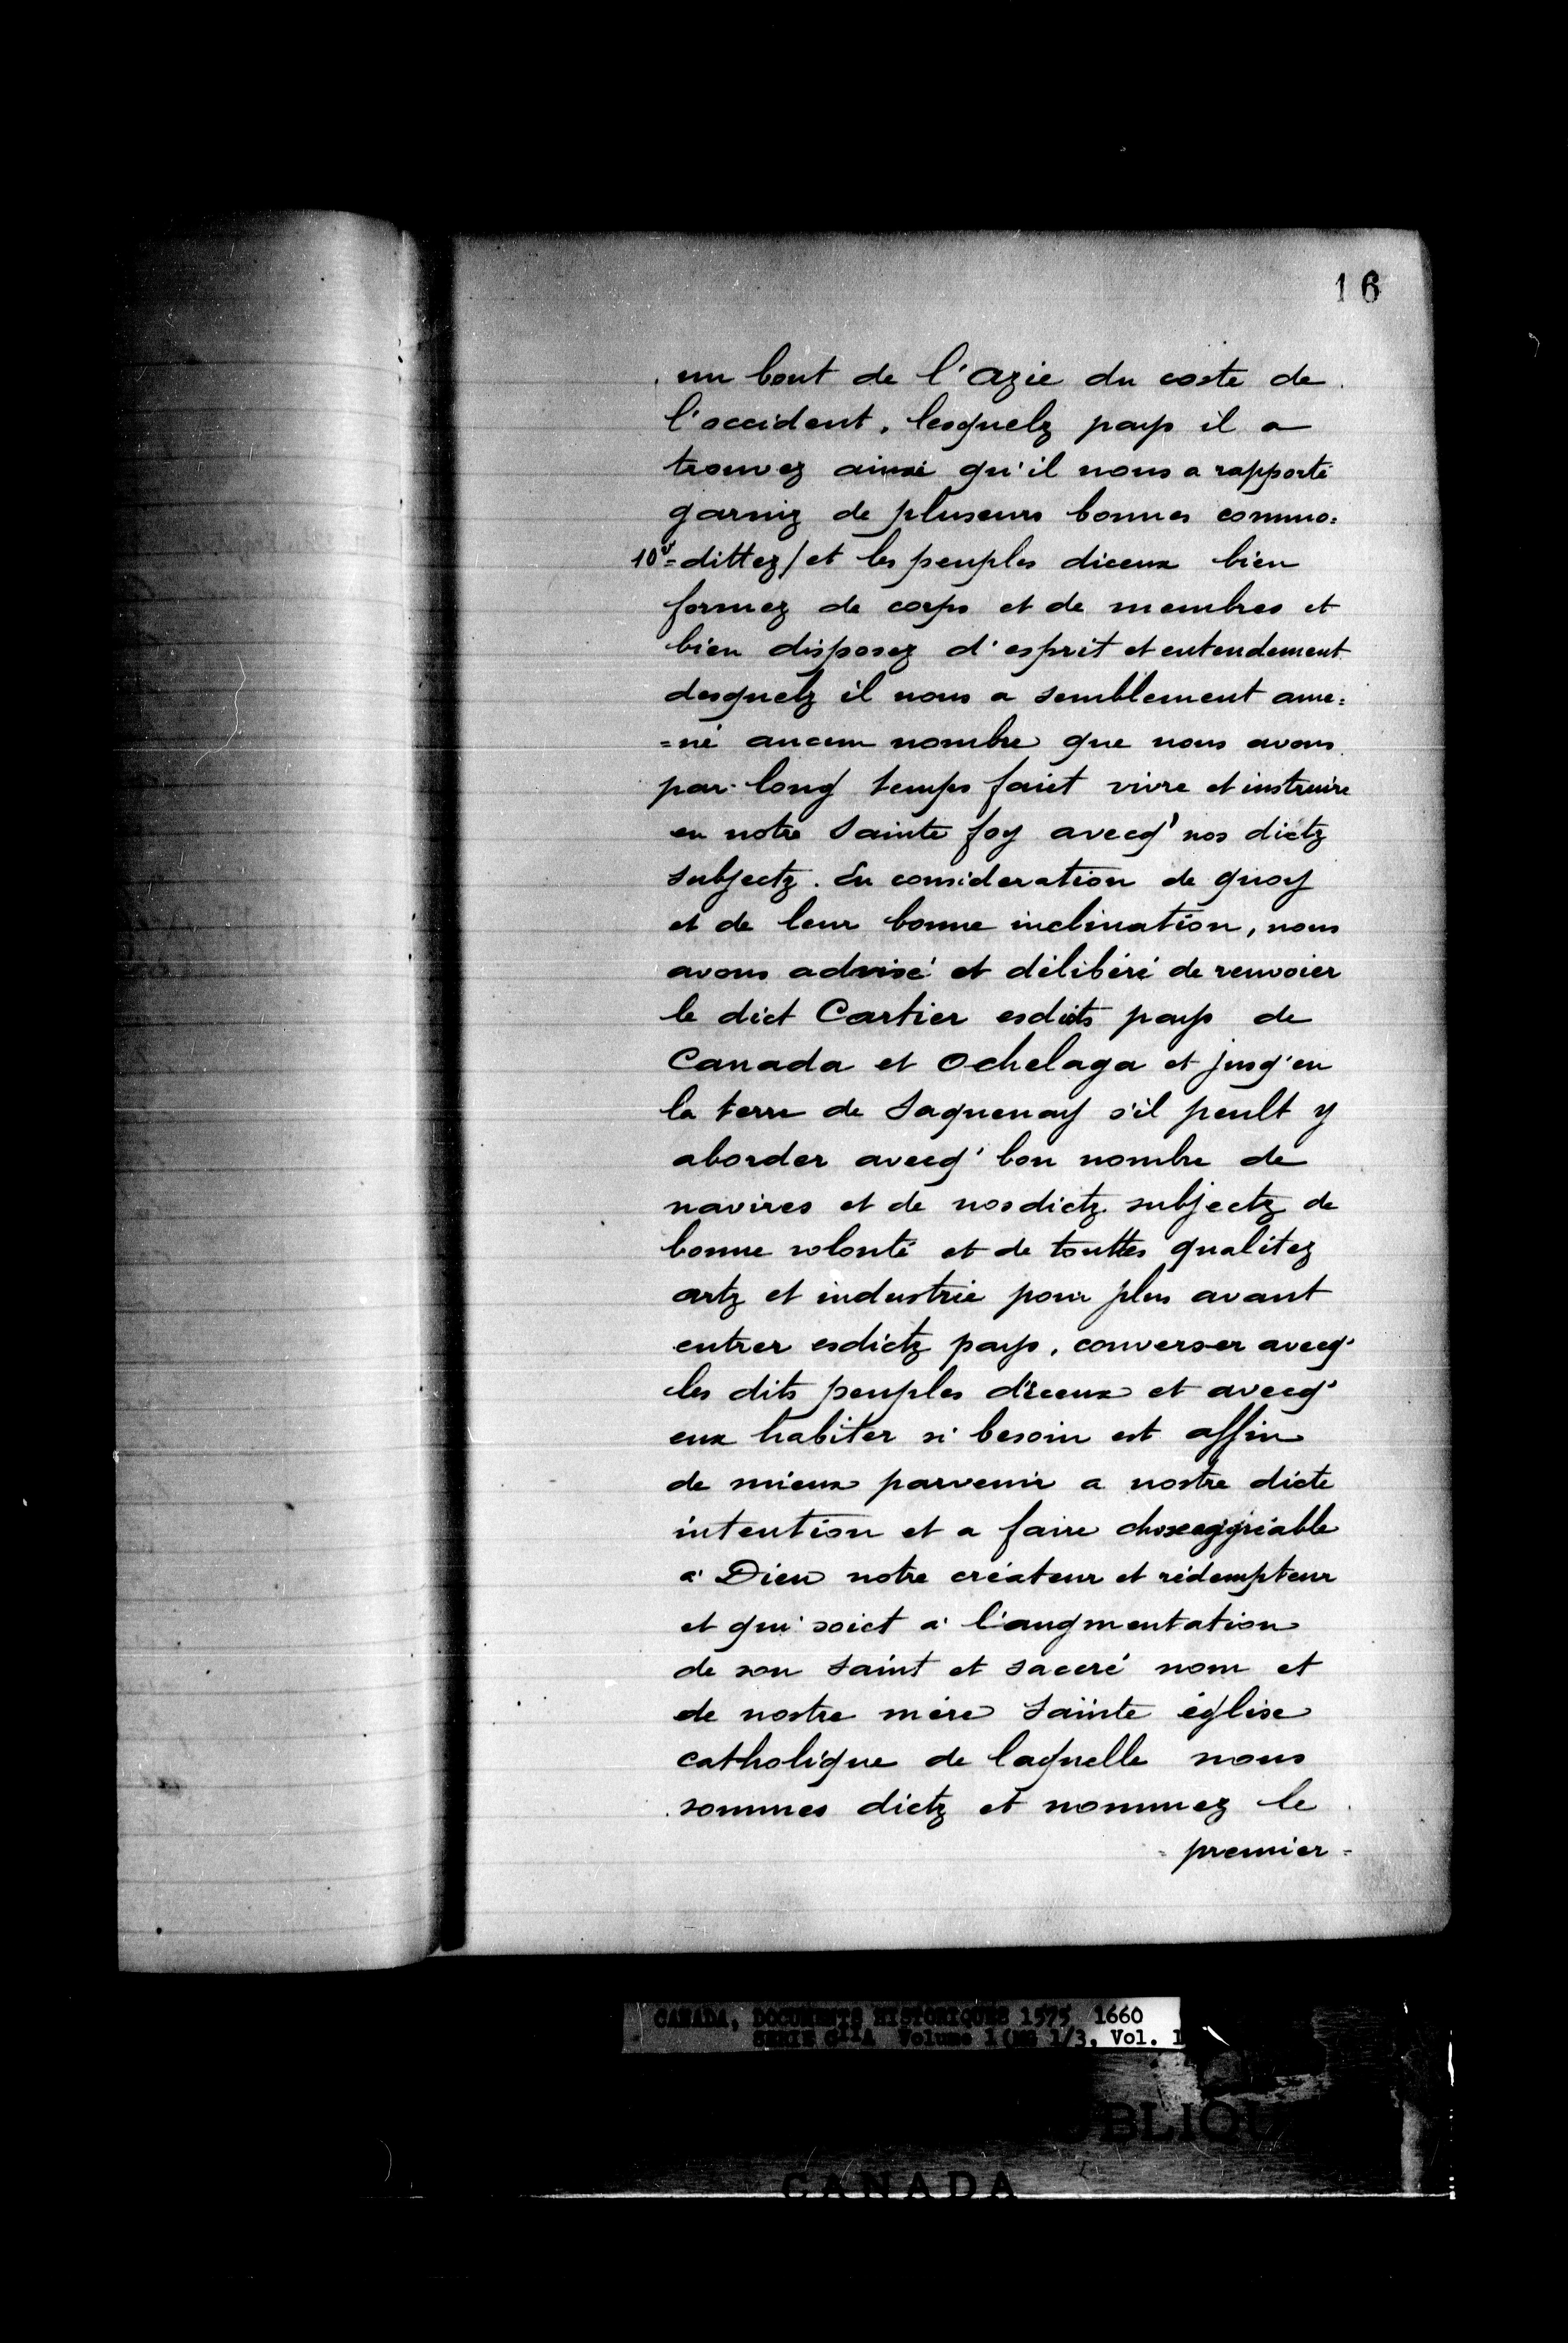 16
un bout de l'Azie du coste de
l'occident, lesquelz pays il a
trouvez ainsi qu'il nous a rapporté
garniz de pluseurs bonnes commo=
10v =dittez / et les peuples diceux bien
formez de corps et de membres et
bien disposez d'esprit et entendement
desquelz il nous a semblement ame=
=né aucun nombre que nous avons
par long temps faict vivre et instruire
en notre sainte foy avecq' nos dictz
subjectz. En consideration de quoy
et de leur bonne inclination, nous
avons advisé et délibéré de renvoier
le dict Cartier esdits pays de
Canada et Ochelaga et jusq'en
la terre de Saguenay s'il peult y
aborder avecq' bon nombre de
navires et de nosdictz subjectz de
bonne volonté et de touttes qualitez
artz et industrie pour plus avant
entrer esdictz pays, converser avecq'
les dits peuples d'iceux et avecq'
eux habiter si besoin est affin
de mieux parvenir a nostre dicte
intention et a faire chose aggréable
à Dieu notre créateur et rédempteur
et qui soict à l'augmentation
de son saint et saceré nom et
de nostre mère sainte église
catholique de laquelle nous
sommes dictz et nommez le
= premier =
CANADA, DOCUMENTS HISTORIQUES 1575 1660
SERIE C11A Volume 1 (MG 1/3, Vol. 1
BLIQU
CANADA